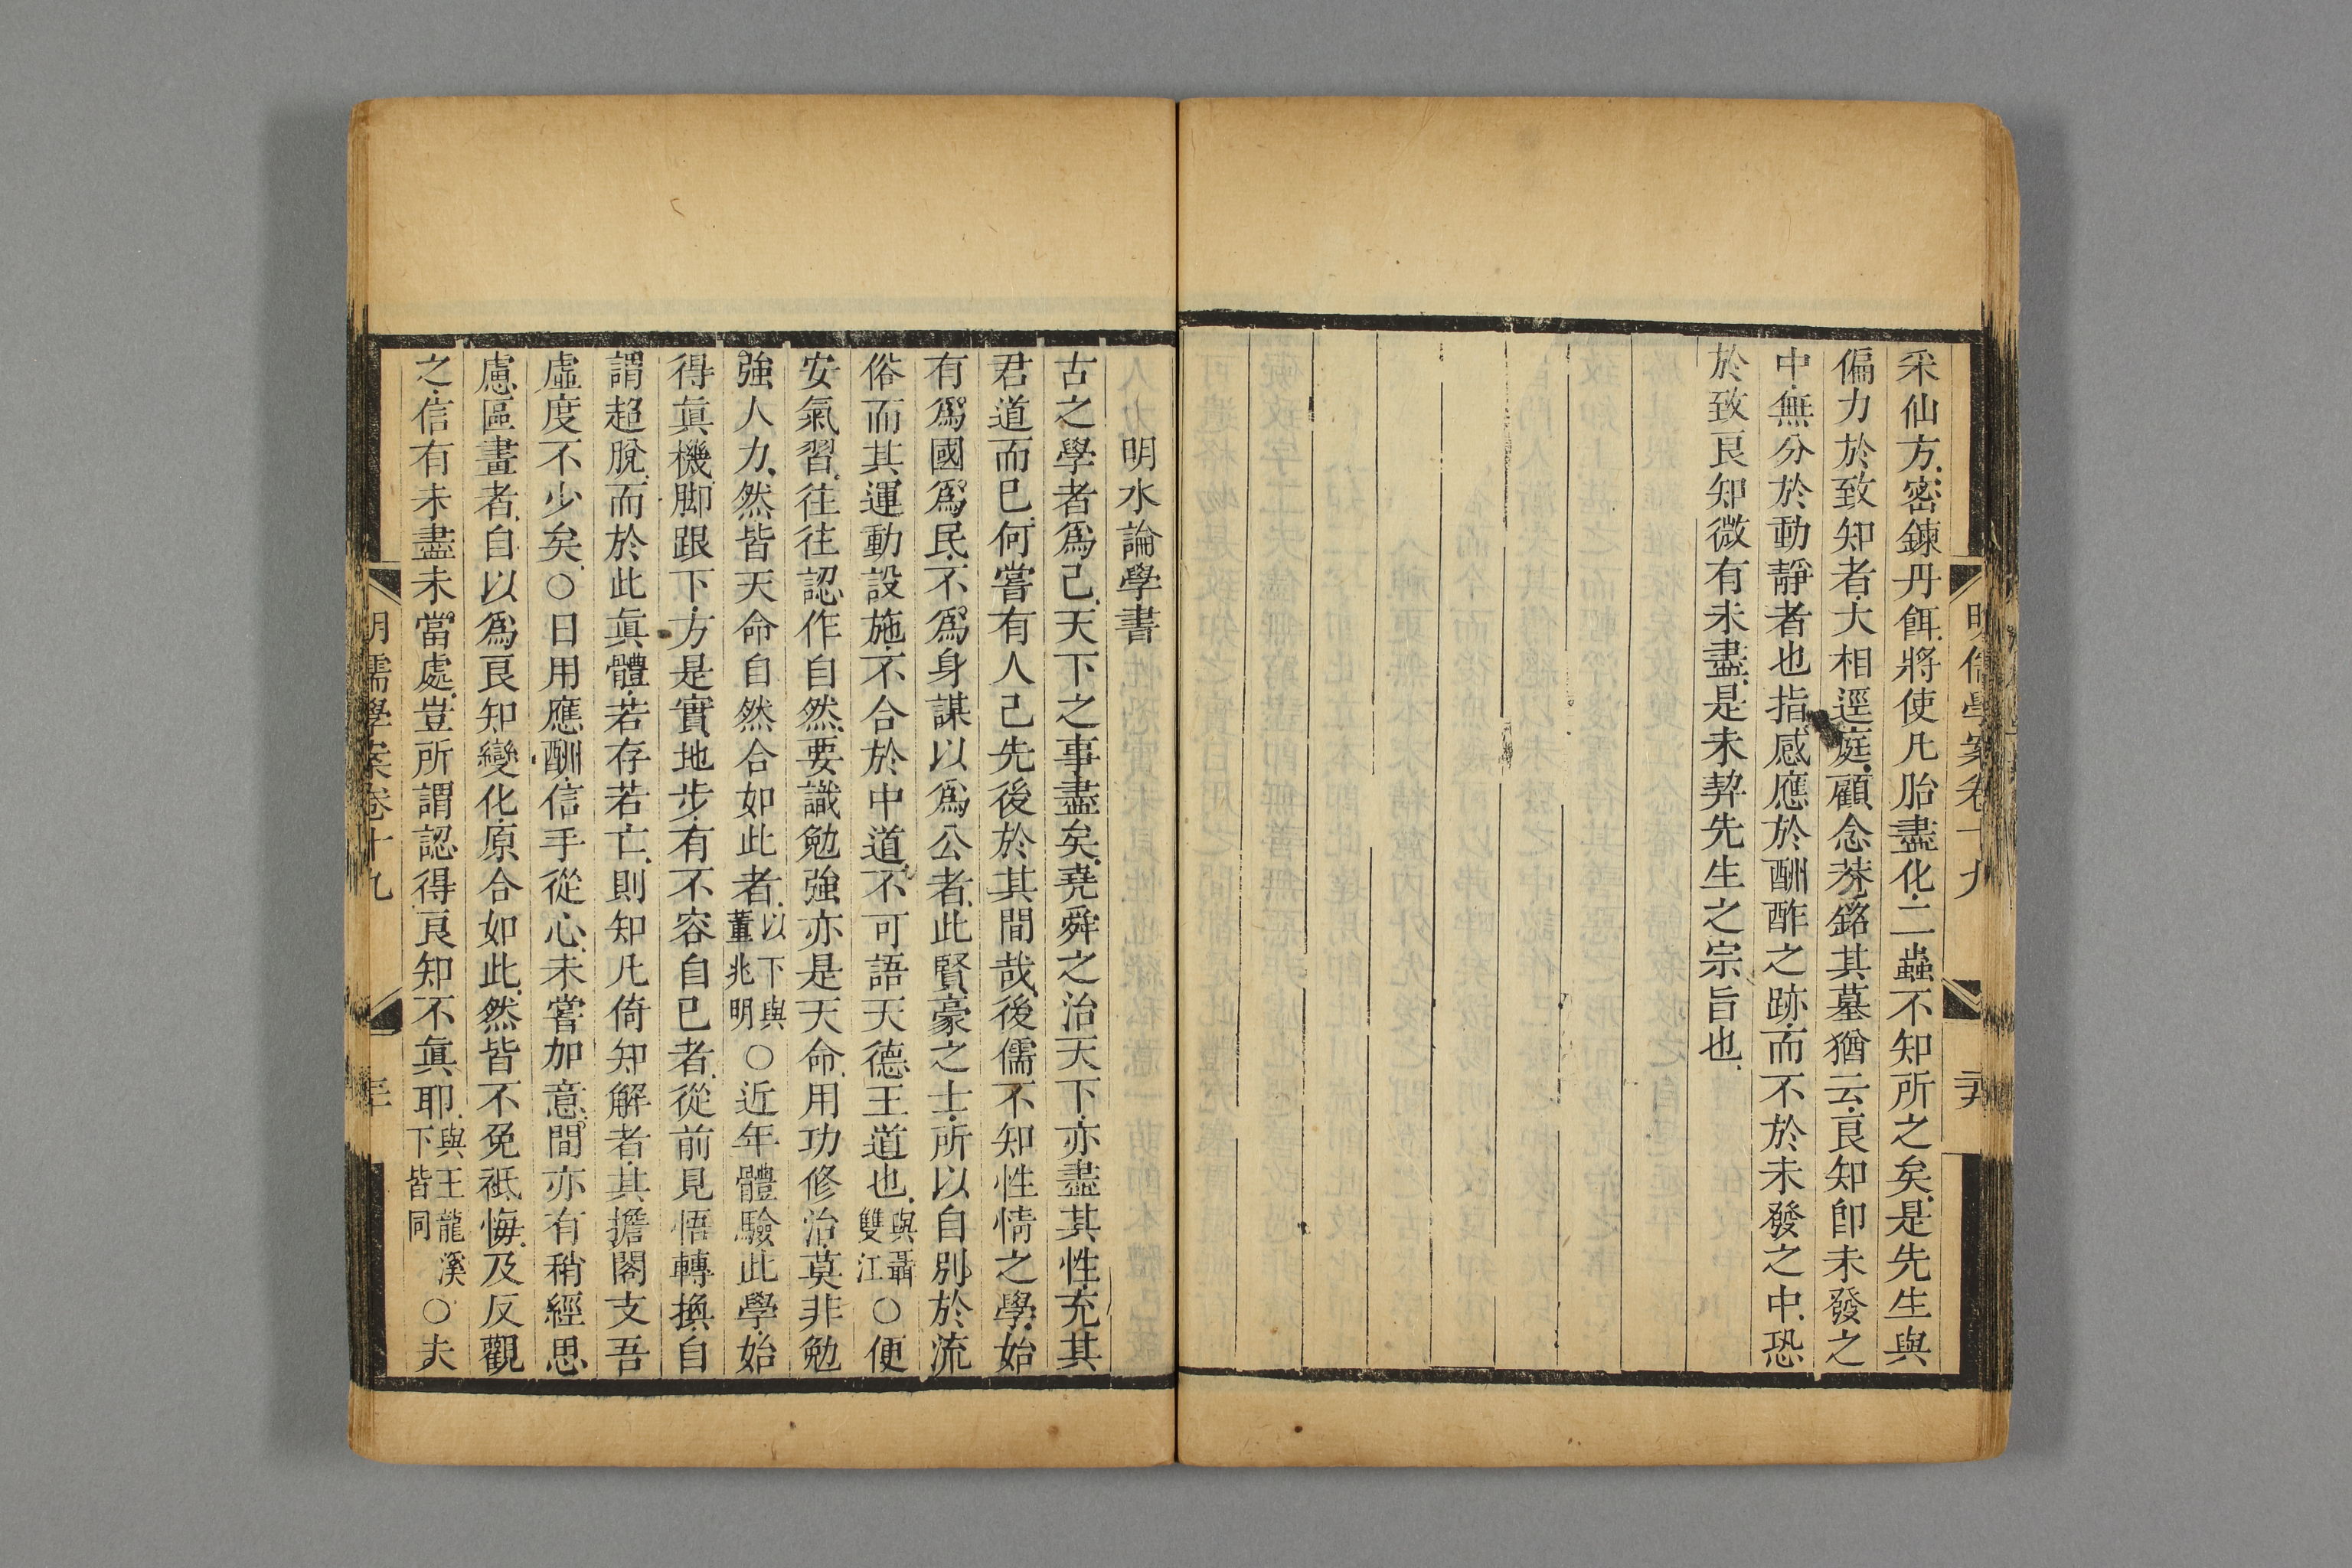 明儒學案卷十九
采仙方密鍊丹餌將使凡胎盡化二蟲不知所之矣是先生與
偏力於致知者大相逕庭顧念菴銘其墓猶云良知卽未發之
中無分於動靜者也指感應於酬酢之跡而不於未發之中恐
於致良知微有未盡是未契先生之宗旨也
明水論學書
古之學者爲己天下之事盡矣堯舜之治天下亦盡其性充其
君道而已何嘗有人己先後於其間哉後儒不知性情之學始
有爲國爲民不爲身謀以爲公者此賢豪之士所以自別於流
俗而其運動設施不合於中道不可語天德王道也與聶雙江○便
安氣習往往認作自然要識勉強亦是天命用功修治莫非勉
強人力然皆天命自然合如此者以下與董兆明○近年體驗此學始
得眞機脚跟下方是實地步有不容自已者從前見悟轉換自
謂超脫而於此眞體若存若亡則知凡倚知解者其擔閣支吾
虛度不少矣○日用應酬信手從心未嘗加意間亦有稍經思
慮區畫者自以爲良知變化原合如此然皆不免祗悔及反觀
之信有未盡未當處豈所謂認得良知不眞耶與王龍溪下皆同○夫
明儒學案卷十九